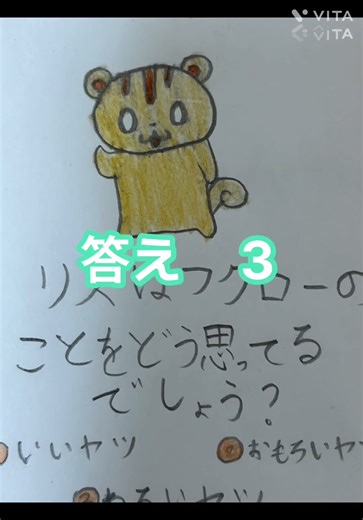 VITA
VITA
答え 3
リスはフクローの
ことをどう思ってる
でしょう?
いいヤツ ②おもろいヤツ
③わるいヤツ